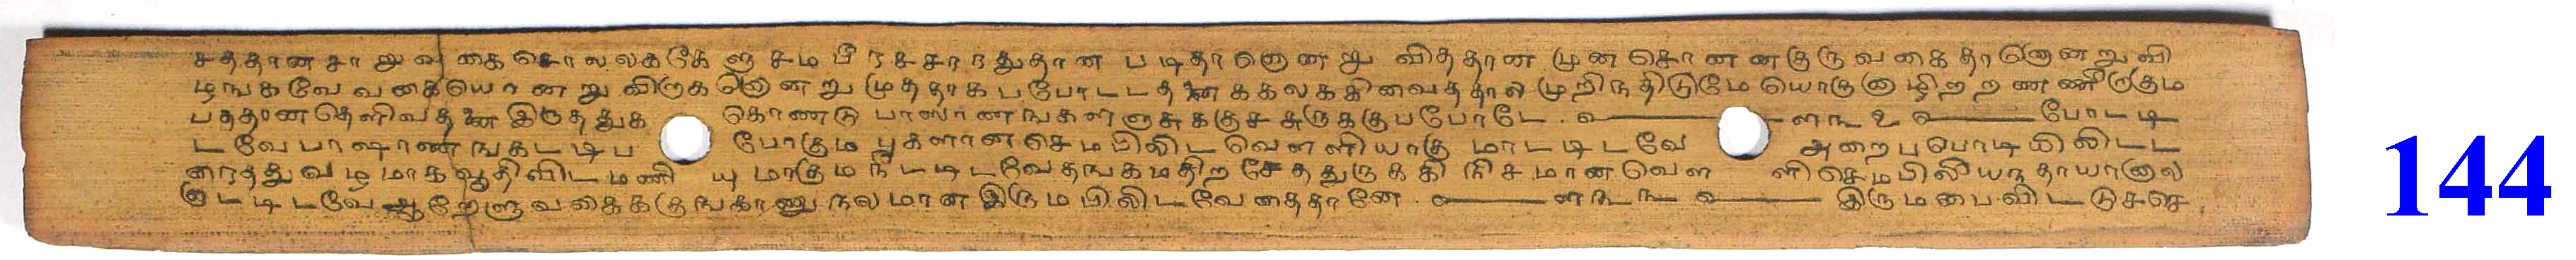 சத்தான சாறு வகை சொலலகக கேளு சமபீரச சாரநதுதான படிதானொனறு விததான முன சொனன குரு வகை தானெனறு வி
ழஙகவே வகையொனறு விருகனெறு முததாகப போடடதனககலககிவைததால முறிநதிடுமே யொருனாழிறறணணீருகும
பததான தெளிவதனை இருததுக கொணடு பாஸாணஙகளளுசுககுச சுருககுப போடே போடடி
டவே பாஷாணஙகடடிப போகும பூகளான செமபிலிட வெளளியாகு மாடடிடவே அறைப பொடியிலிடட
னைதது வழமாக வூதிவிட மணி யுமாகும நீடடிடவே தஙகமதிற சேததுருககி நிசமான வெள ளி செமபிலீயநதாயானால
னாடடிடவே ஆறேளு வகைககுஙகாணு நலமான இருமபிலிடவேனைதானே இருமபை விடடு சசெ
144